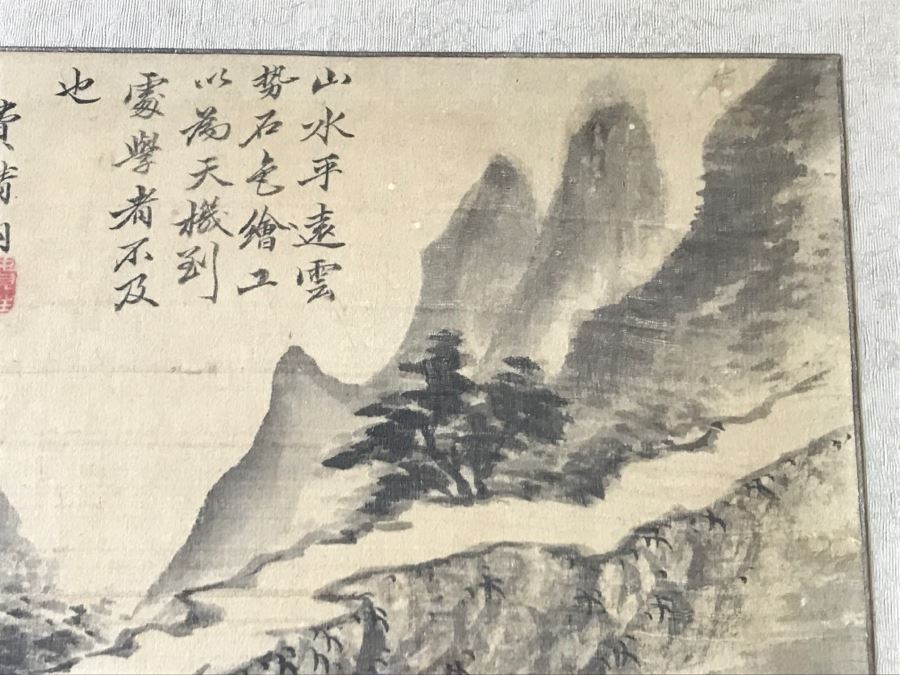 山水平遠雲
勢石色繪工
以為天機到
處學者不及
也